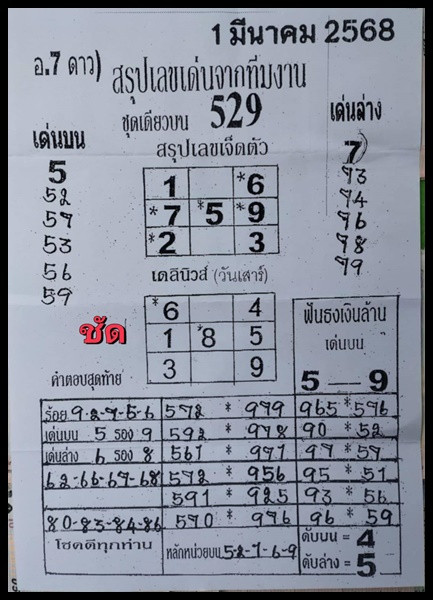 1 มีนาคม 2568
อ.7 ดาว)
สรุปเลขเด่นจากทีมงาน
ชุดเดียวบน 529
เด่นล่าง
เด่นบน
สรุปเลขเจ็ดตัว
5
7
52
73
57
74
53
76
56
78
59
79
1 *6
*7 *5 *9
*2 3
เดลินิวส์ (วันเสาร์)
*6 4
1 *8 5
3 9
ชัด
คำตอบสุดท้าย
ฟันธงเงินล้าน
เด่นบน
5 — 9
ร้อย 9-2-7-5-6 572 * 979 965 * 576
เด่นบน 5 รอง 9 592 * 978 90 * 52
เด่นล่าง 6 รอง 8 561 * 971 97 * 57
62-66-67-68 572 * 956 95 * 51
591 * 925 93 * 56
80-83-84-86 570 * 976 96 * 59
โชคดีทุกท่าน
หลักหน่วยบน 5-2-7-6-9
ดับบน = 4
ดับล่าง = 5